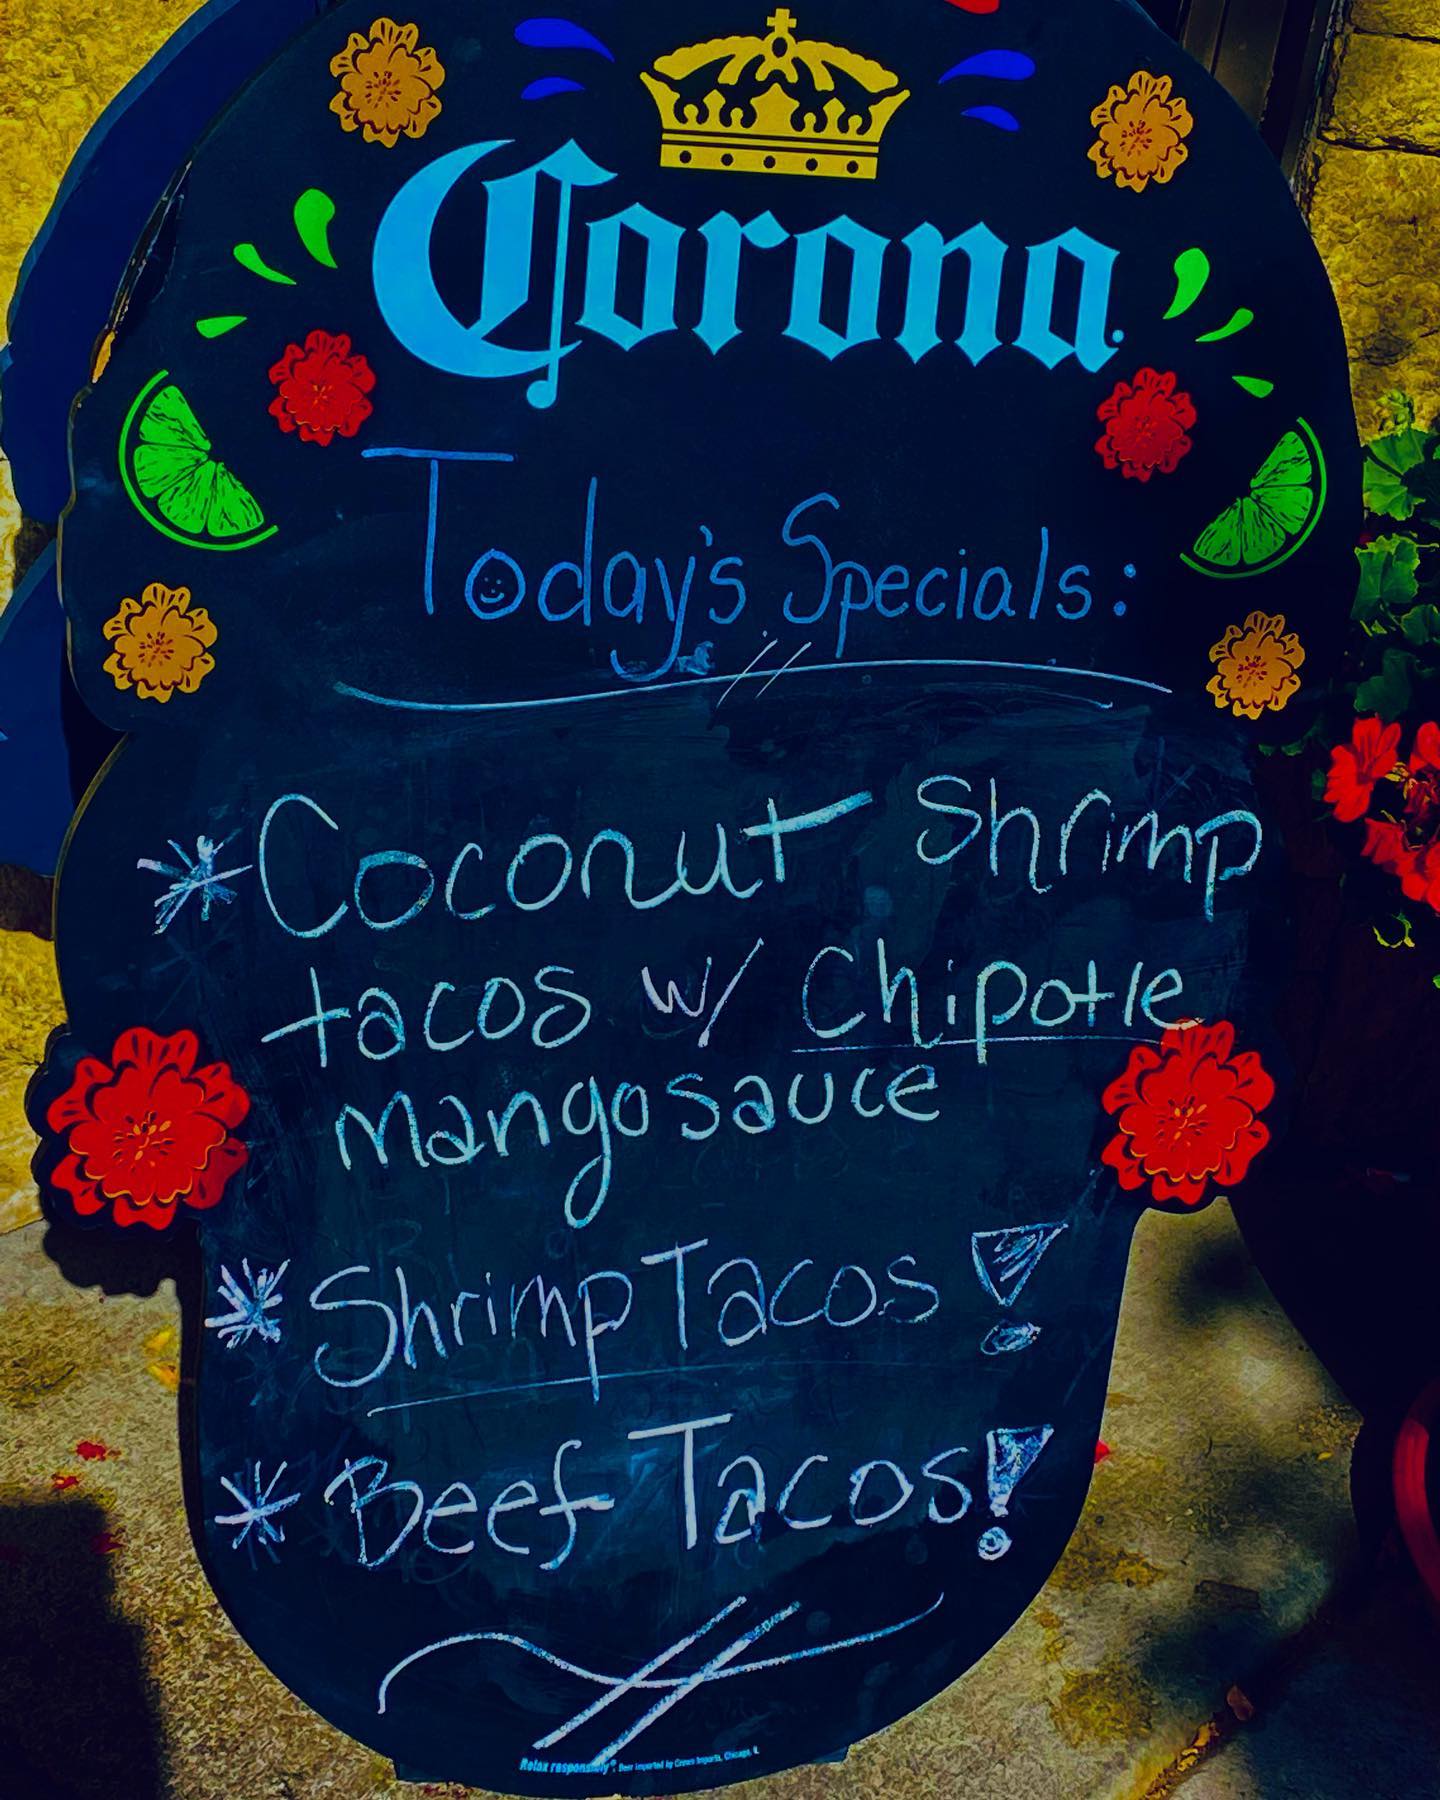 Corona
Today's Specials:
*Coconut Shrimp
tacos w/ Chipotle
mango sauce
*Shrimp Tacos!
*Beef Tacos!
Relax responsibly® Beer imported by Crown Imports, Chicago, IL